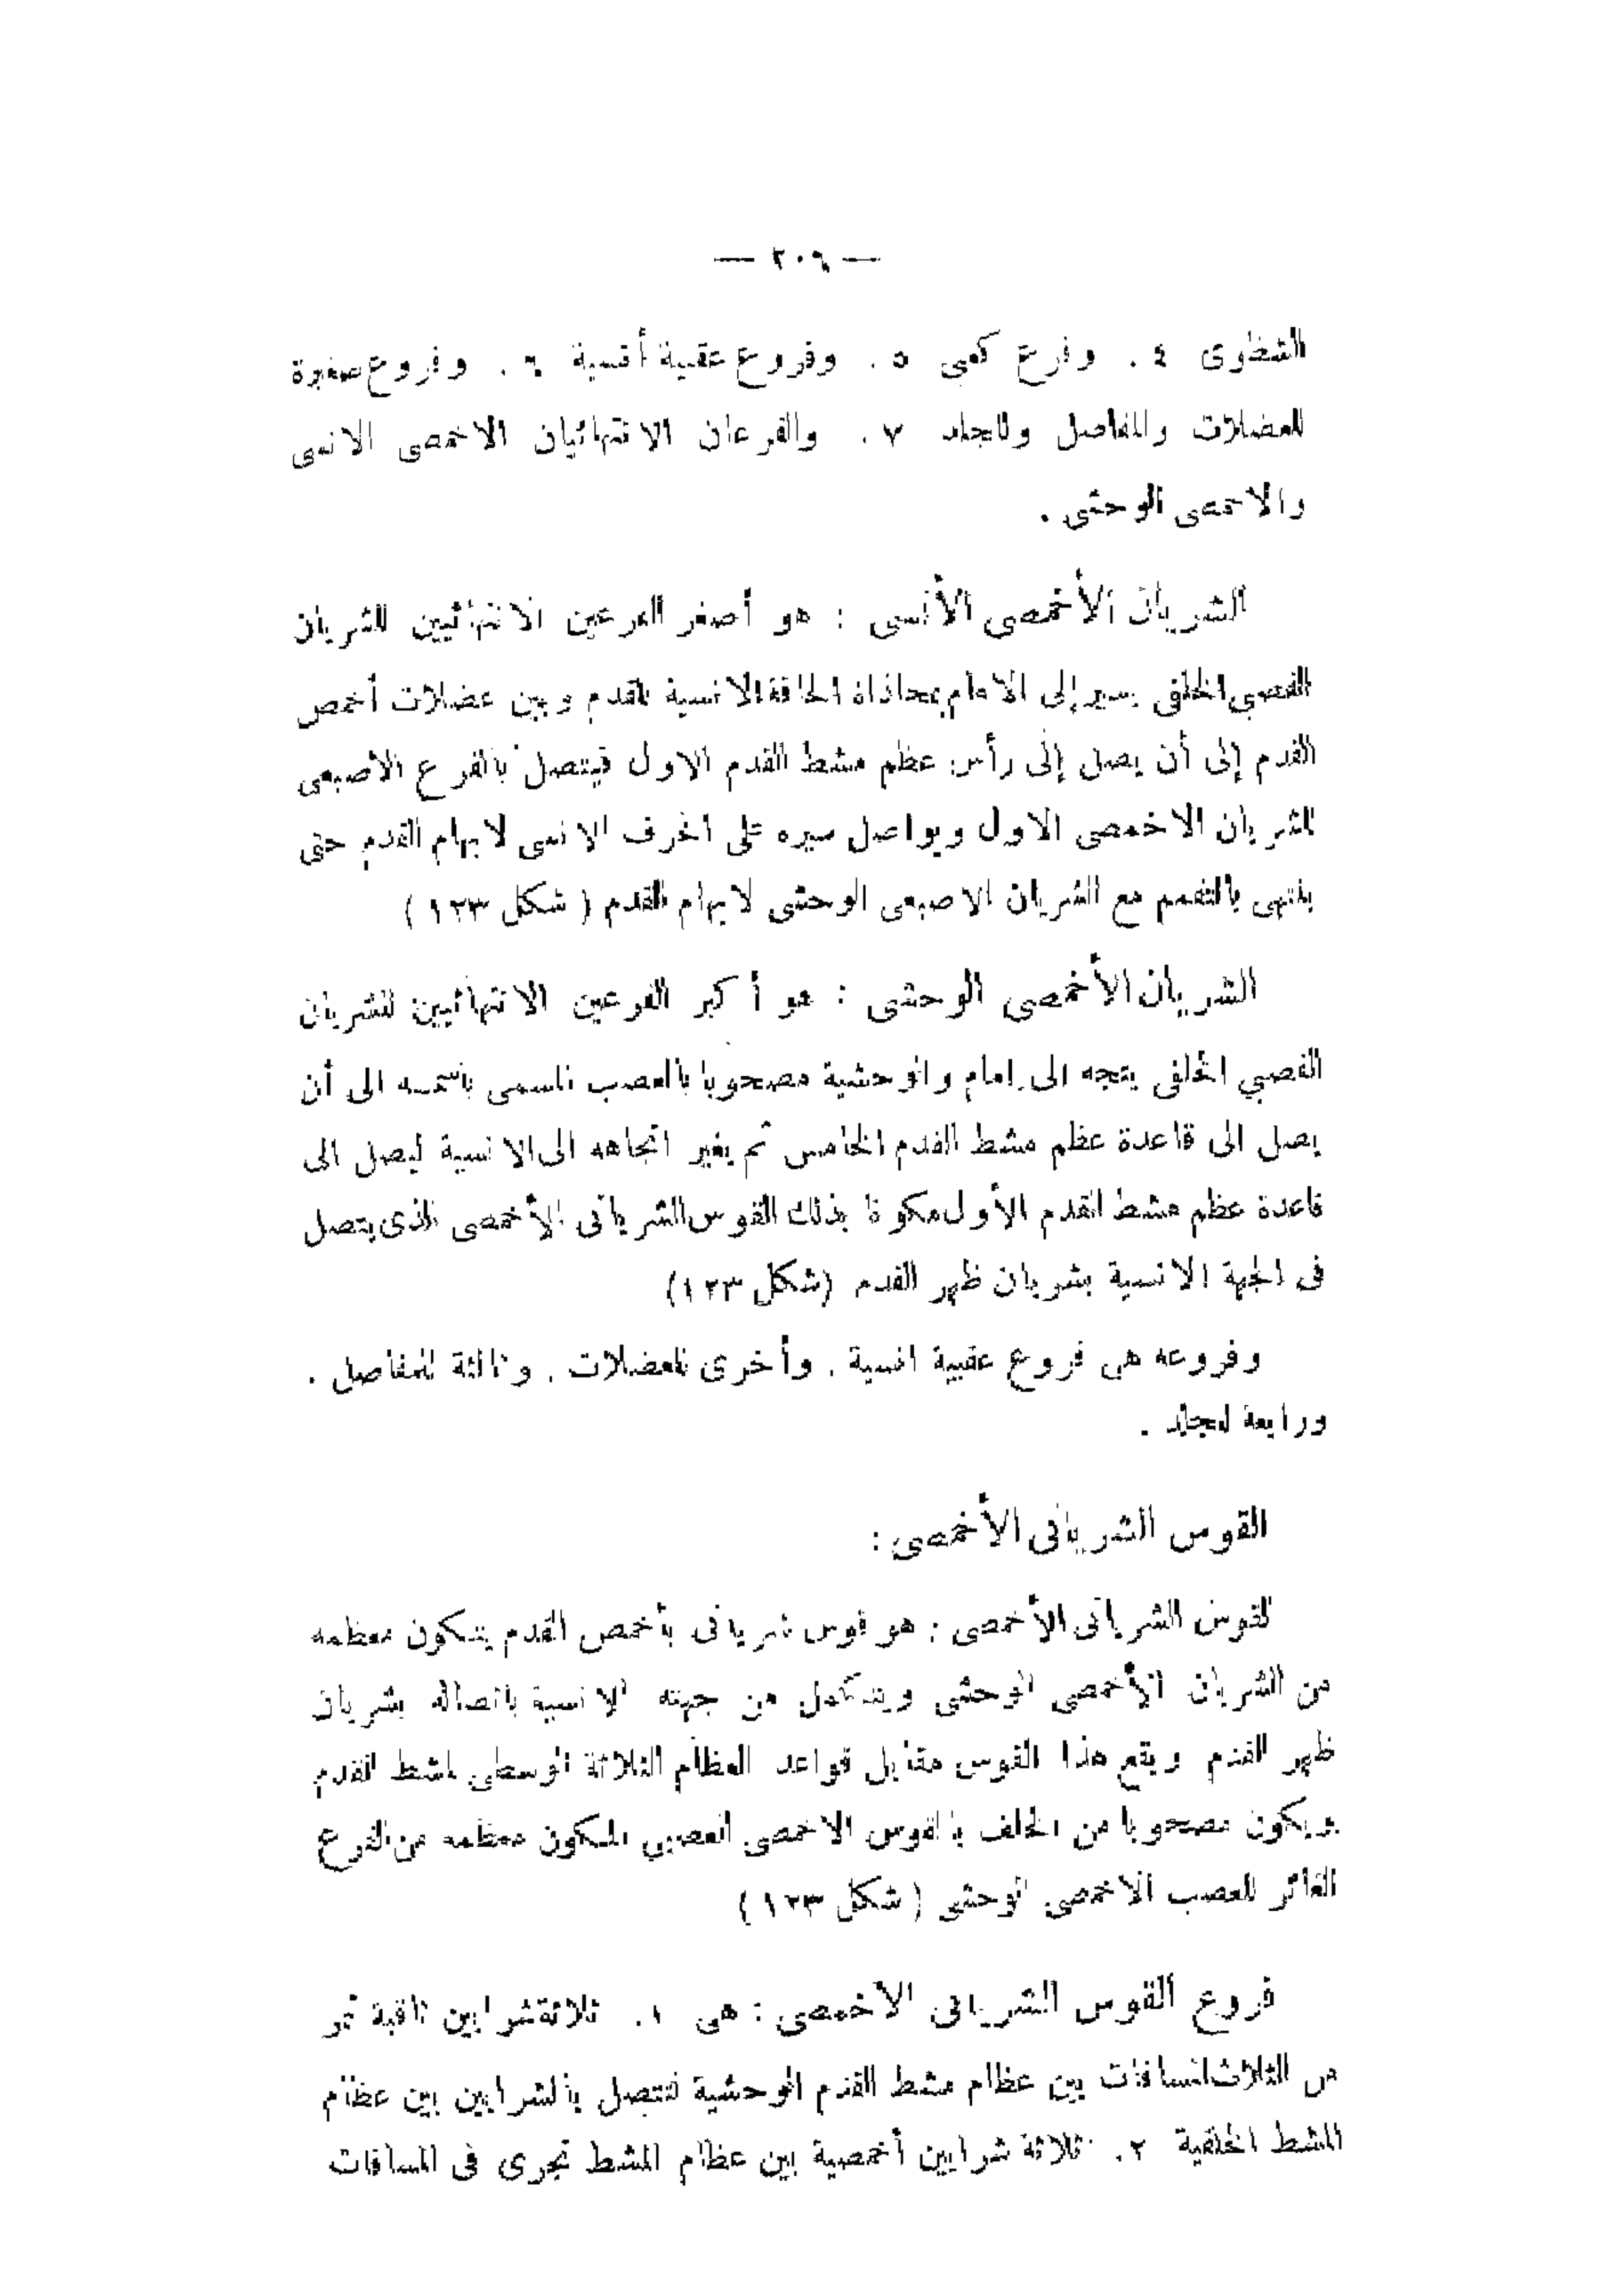 — ٢٠٦ —
الشظوى ٤ . وفرع كعبى ٥ . وفروع عقبية أنسية ٦ . وفروع صغيرة
للعضلات والمفاصل وللجلد ٧ . والفرعان الانتهائيان الاخمصى الانسى
والاخمصى الوحشى .
الشريان الأخمصى الأنسى : هو أصغر الفرعين الانتهائيين للشريان
القصبي الخلفى يسير إلى الامام بمحاذاة الحافة الانسية للقدم وبين عضلات أخمص
القدم إلى أن يصل إلى رأس عظم مشط القدم الاول فيتصل بالفرع الاصبعى
للشريان الاخمصى الاول ويواصل سيره على الحرف الانسى لابهام القدم حتى
ينتهى بالتفمم مع الشريان الاصبعى الوحشى لابهام القدم ( شكل ١٢٣ )
الشريان الأخمصى الوحشى : هو أكبر الفرعين الانتهائيين للشريان
القصبي الخلفى يتجه الى امام والوحشية مصحوبا بالعصب المسمى باسمه الى أن
يصل الى قاعدة عظم مشط القدم الخامس ثم يغير اتجاهه الى الانسية ليصل الى
قاعدة عظم مشط القدم الأول مكونا بذلك القوس الشريانى الأخمصى الذى يتصل
فى الجهة الانسية بشريان ظهر القدم (شكل ١٢٣)
وفروعه هى فروع عقبية انسية . وأخرى للعضلات . وثالثة للمفاصل .
ورابعة للجلد .
القوس الشريانى الأخمصى :
القوس الشريانى الأخمصى : هو قوس شريانى بأخمص القدم يتكون معظمه
من الشريان الأخمصى الوحشى ويتكمل من جهته الانسية باتصاله بشريان
ظهر القدم ويقع هذا القوس مقابل قواعد العظام الثلاثة الوسطى لمشط القدم
ويكون مصحوبا من الخلف بالقوس الاخمصى العصبي المتكون معظمه من الفرع
الغائر للعصب الاخمصى الوحشى ( شكل ١٢٣ )
فروع القوس الشريانى الاخمصى : هى ١ . ثلاثة شرايين ثاقبة تمر
من الثلاث المسافات بين عظام مشط القدم الوحشية فتتصل بالشرايين بين عظام
المشط الخلفية ٢ . ثلاثة شرايين أخمصية بين عظام المشط تجرى فى المسافات